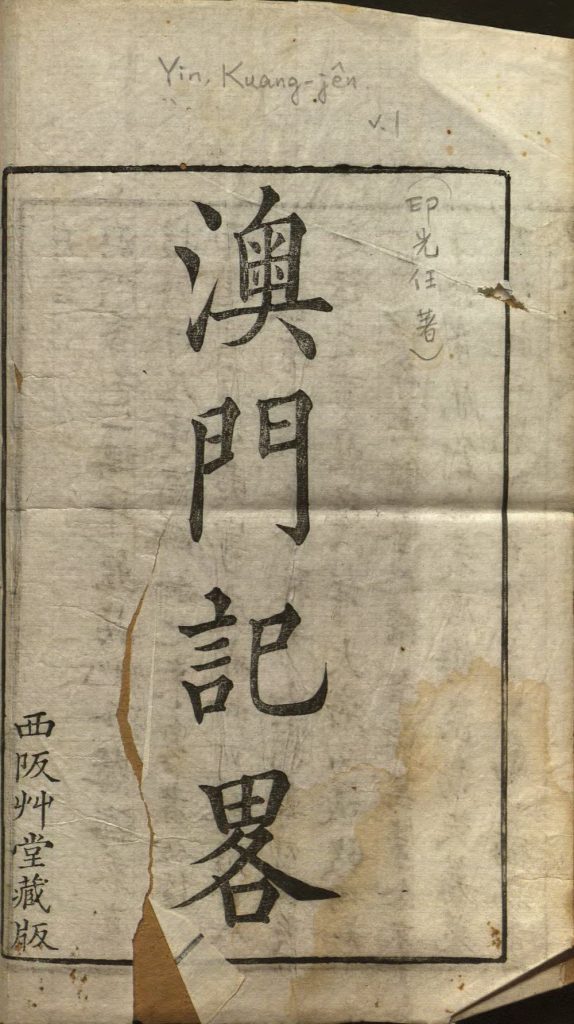 Yin, Kuang-jên.
v.1
(印先任 著)
澳門記畧
西阪艸堂藏版